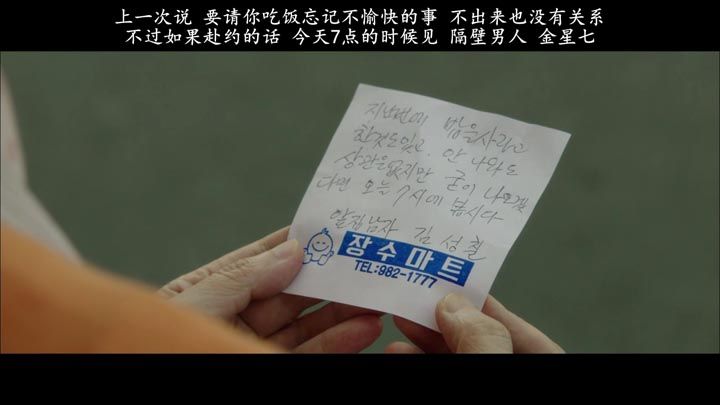 上一次说 要请你吃饭忘记不愉快的事 不出来也没有关系
不过如果赴约的话 今天7点的时候见 隔壁男人 金星七
지난번에 밥을사라고
한것도있고. 안 나와도
상관은없지만 굳이 나오겠
다면 오늘 7시에 봅시다
앞집남자 김 성칠
장수마트
TEL:982-1777